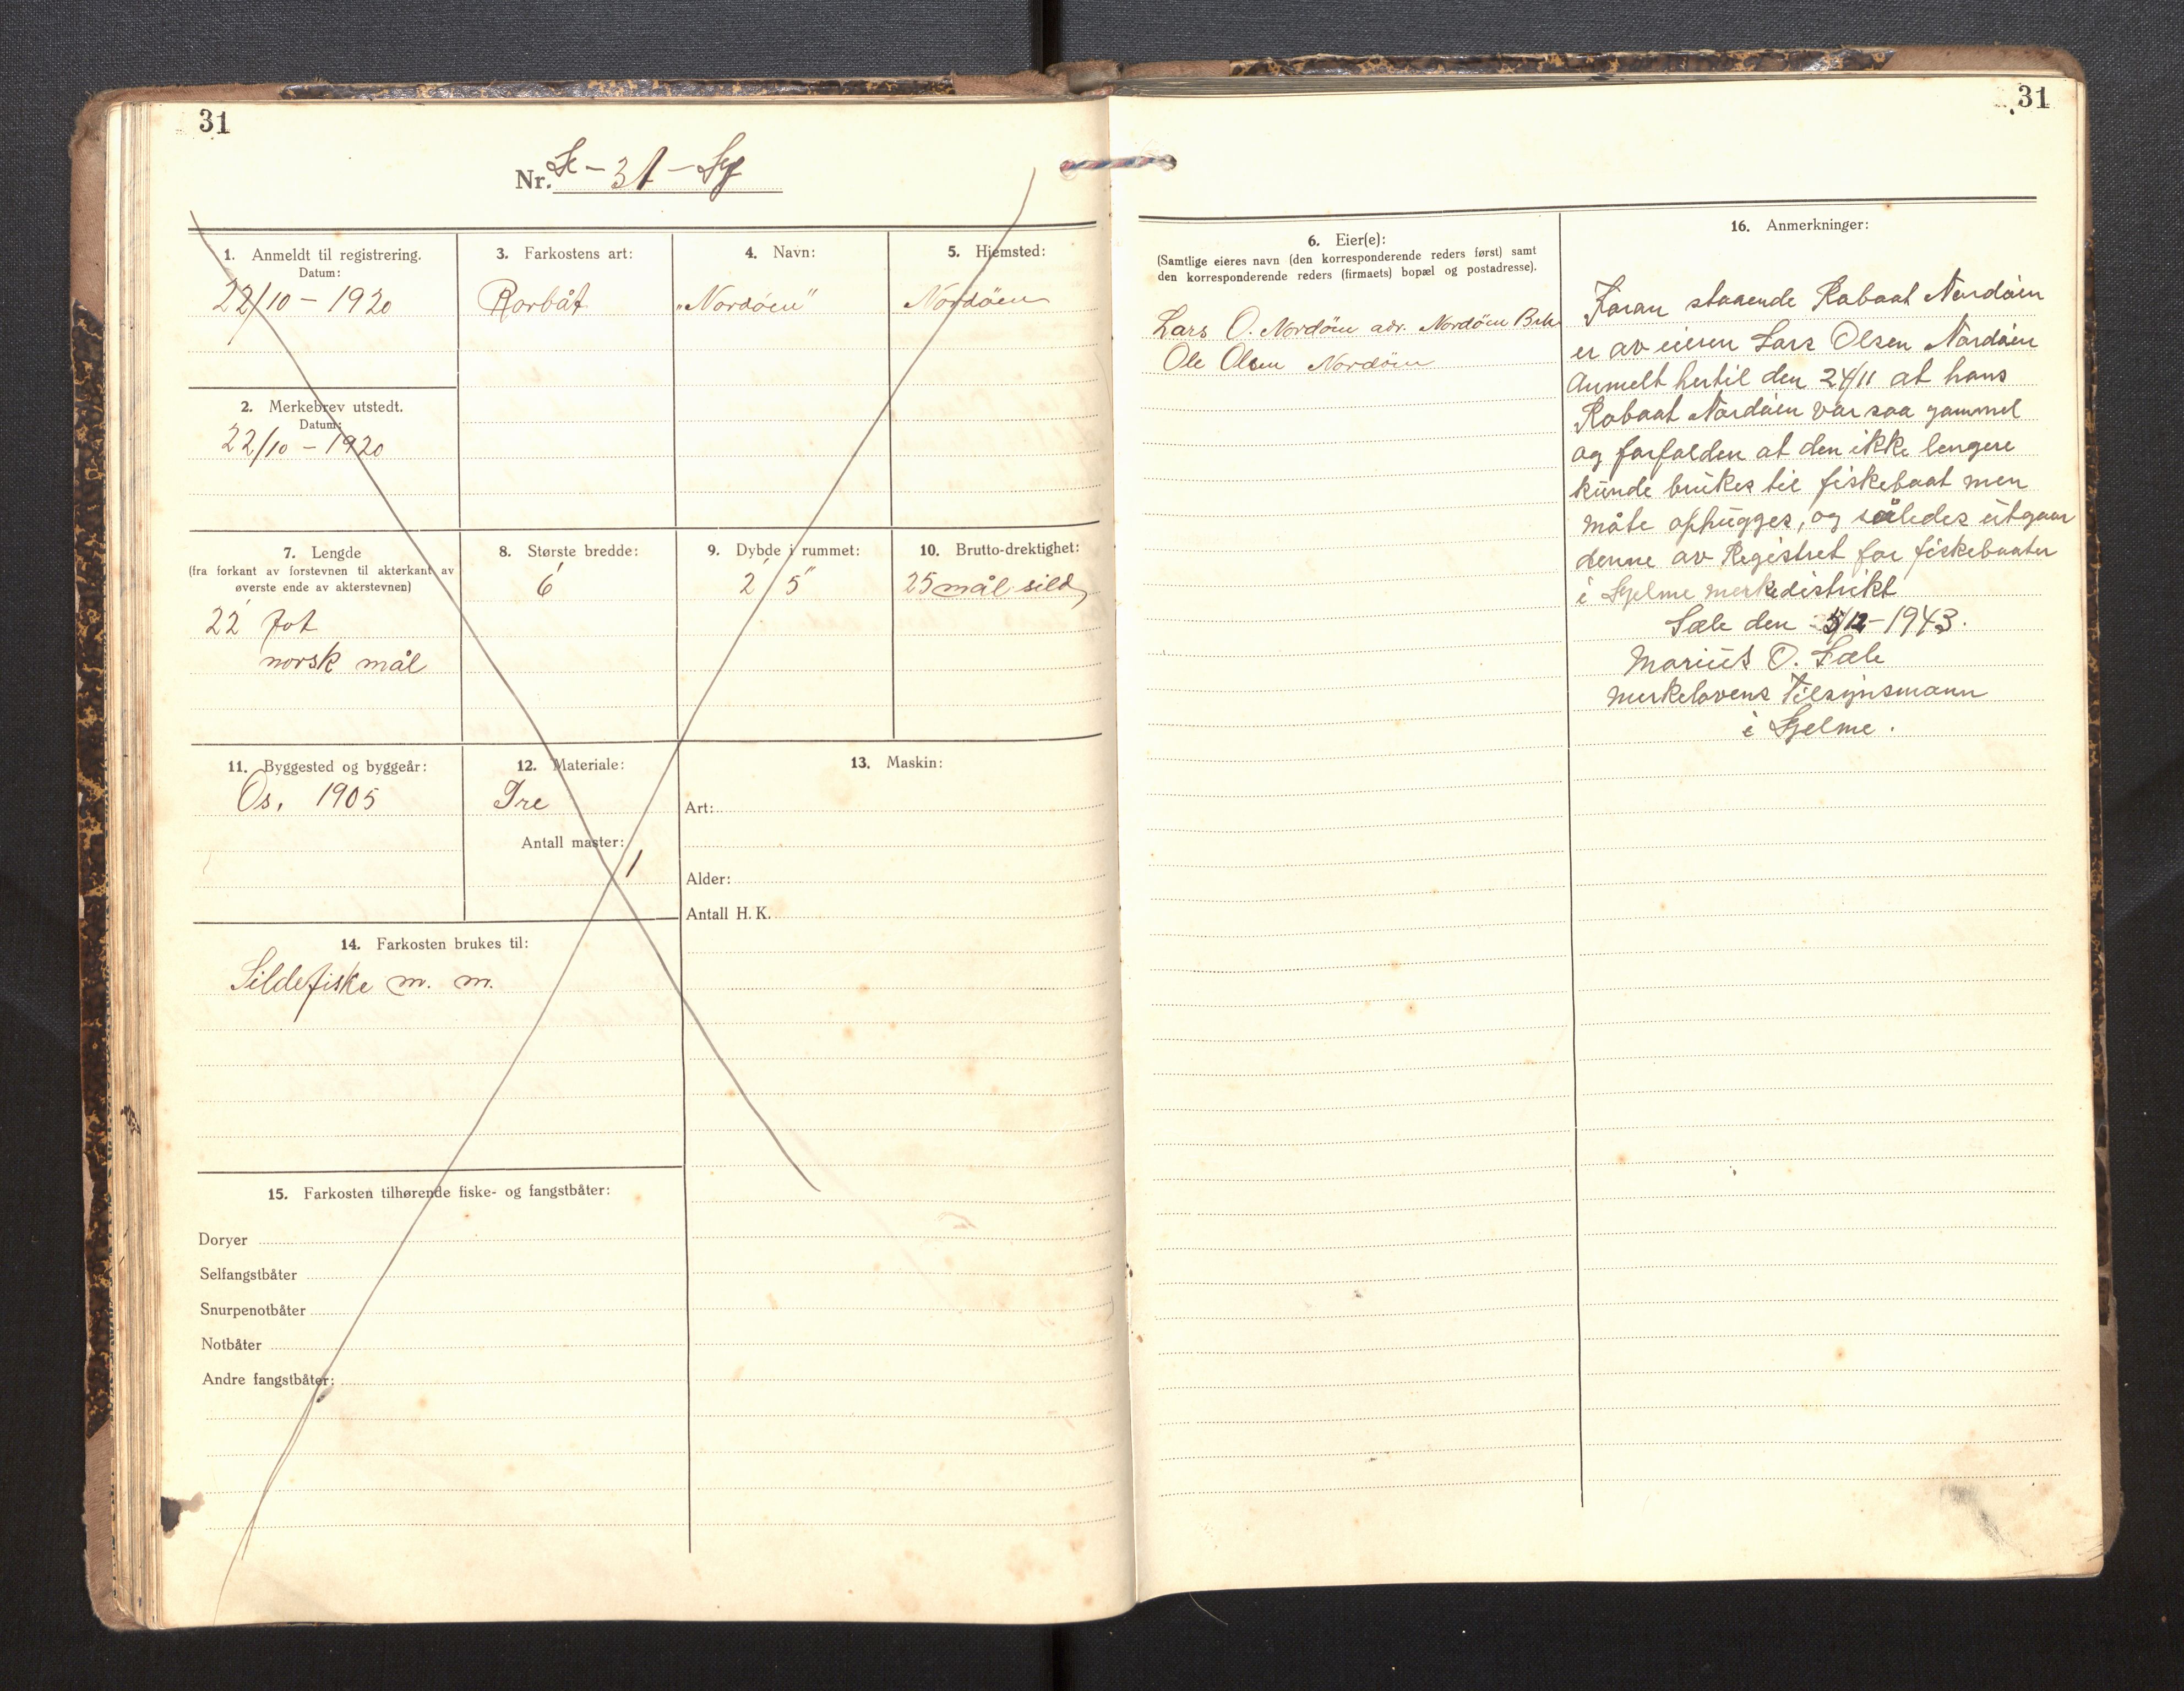 31
Nr. H-31-Hj
1. Anmeldt til registrering.
Datum:
22/10 - 1920
3. Farkostens art:
Rorbåt
4. Navn:
"Nordöen"
5. Hjemsted:
Nordöen
2. Merkebrev utstedt.
Datum:
22/10 - 1920
7. Lengde
(fra forkant av forstevnen til akterkant av
øverste ende av akterstevnen)
22' fot
norsk mål
8. Største bredde:
6'
9. Dybde i rummet:
2' 5"
10. Brutto-drektighet:
25 mål sild
11. Byggested og byggeår:
Os, 1905
12. Materiale:
Tre
Antall master:
1
13. Maskin:
Art:
Alder:
Antall H. K.
14. Farkosten brukes til:
Sildefiske m. m.
15. Farkosten tilhørende fiske- og fangstbåter:
Doryer
Selfangstbåter
Snurpenotbåter
Notbåter
Andre fangstbåter:
31
6. Eier(e):
(Samtlige eieres navn (den korresponderende reders først) samt
den korresponderende reders (firmaets) bopæl og postadresse).
Lars O. Nordöen adr. Nordöen
Ole Olsen Nordöen
16. Anmerkninger:
Foran staaende Robaat Nordöen
er av eieren Lars Olsen Nordöen
Anmelt hertil den 24/11 at hans
Robaat Nordöen var saa gammel
og forfalden at den ikke lengere
kunde brukes til fiskebaat men
måte ophugges, og således utgaar
denne av Registret for fiskebaater
i Hjelme merkedistrikt
Sæle den 5/12-1943.
Marius O. Sæle
Merkelovens Tilsynsmann
i Hjelme.